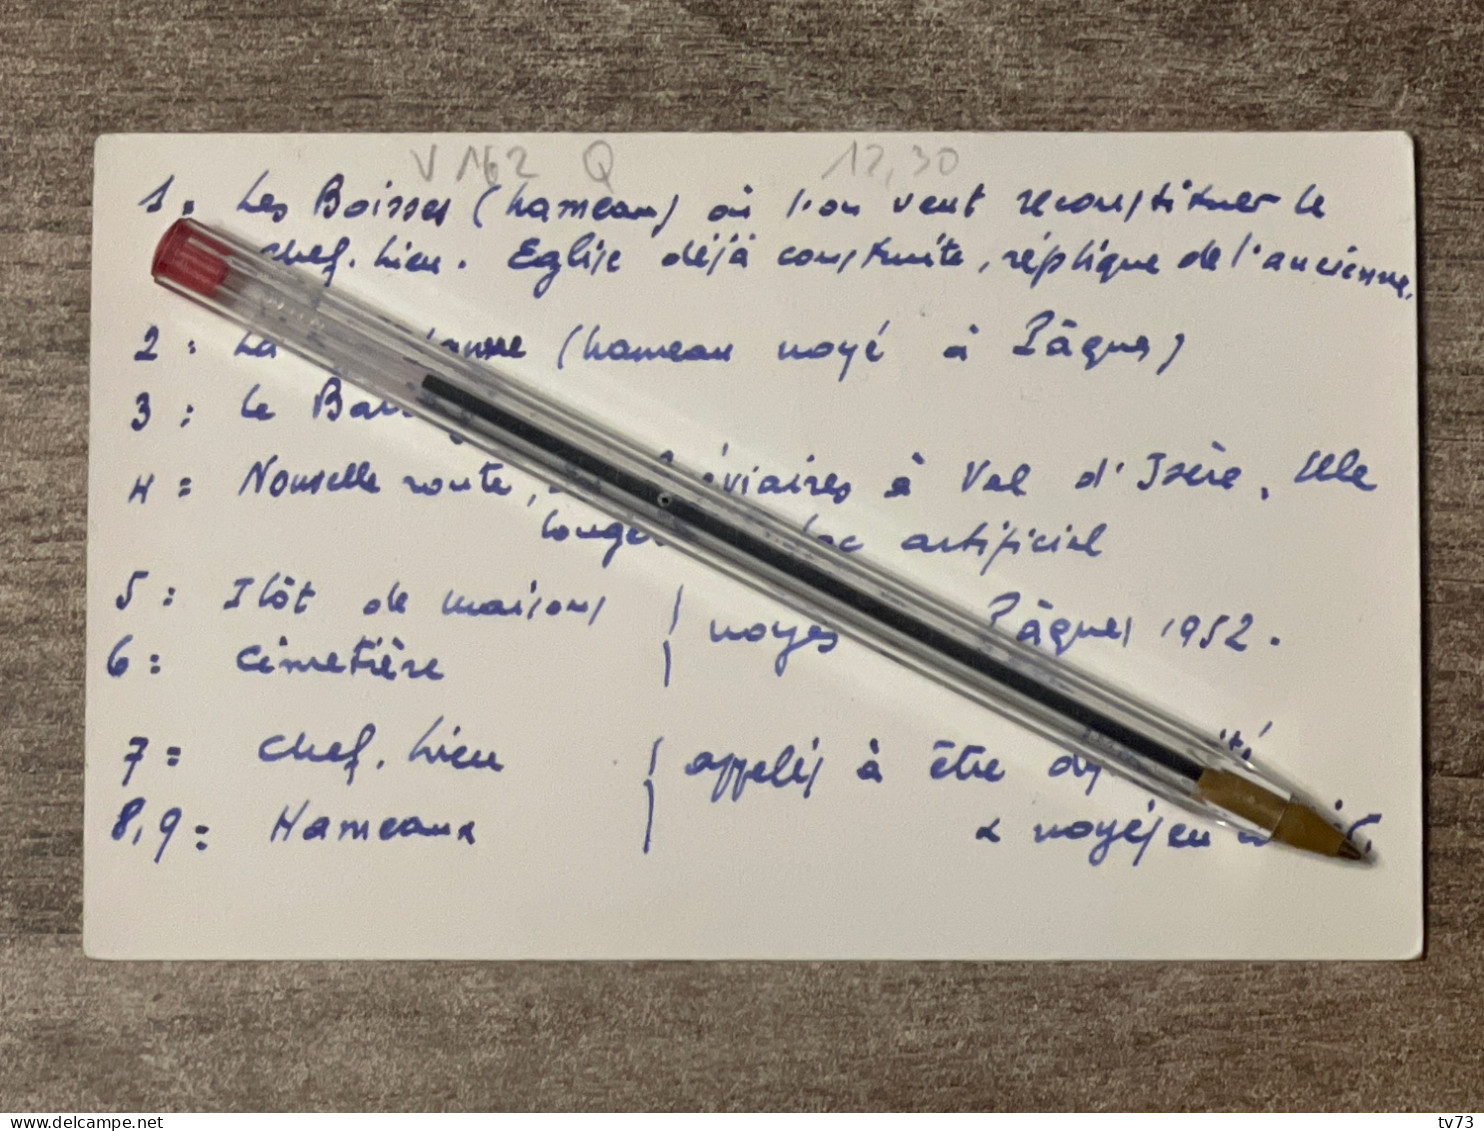 V 162 Q 12,30
1 = Les Boisses (hameau) où l'on veut reconstituer le
chef-lieu. Eglise déjà construite, réplique de l'ancienne.
2 : La (hameau noyé à Pâques)
3 : Le
4 = Nouvelle route, à Val d'Isère. Elle
artificiel
5 : Ilôt de maisons noyés Pâques 1952.
6 : Cimetière
7 = chef-lieu appelés à être
8,9 = Hameaux & noyés en
www.delcampe.net tv73